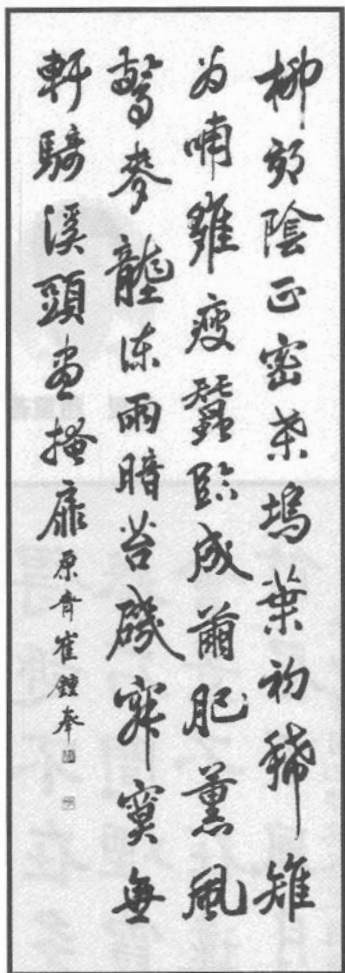 柳郊陰正密桑塢葉初稀雉
為哺雛瘦蠶臨成繭肥薰風
驚麥壟凍雨暗苔磯寂寞無
軒騎溪頭晝掩扉 原靑崔鍾奉